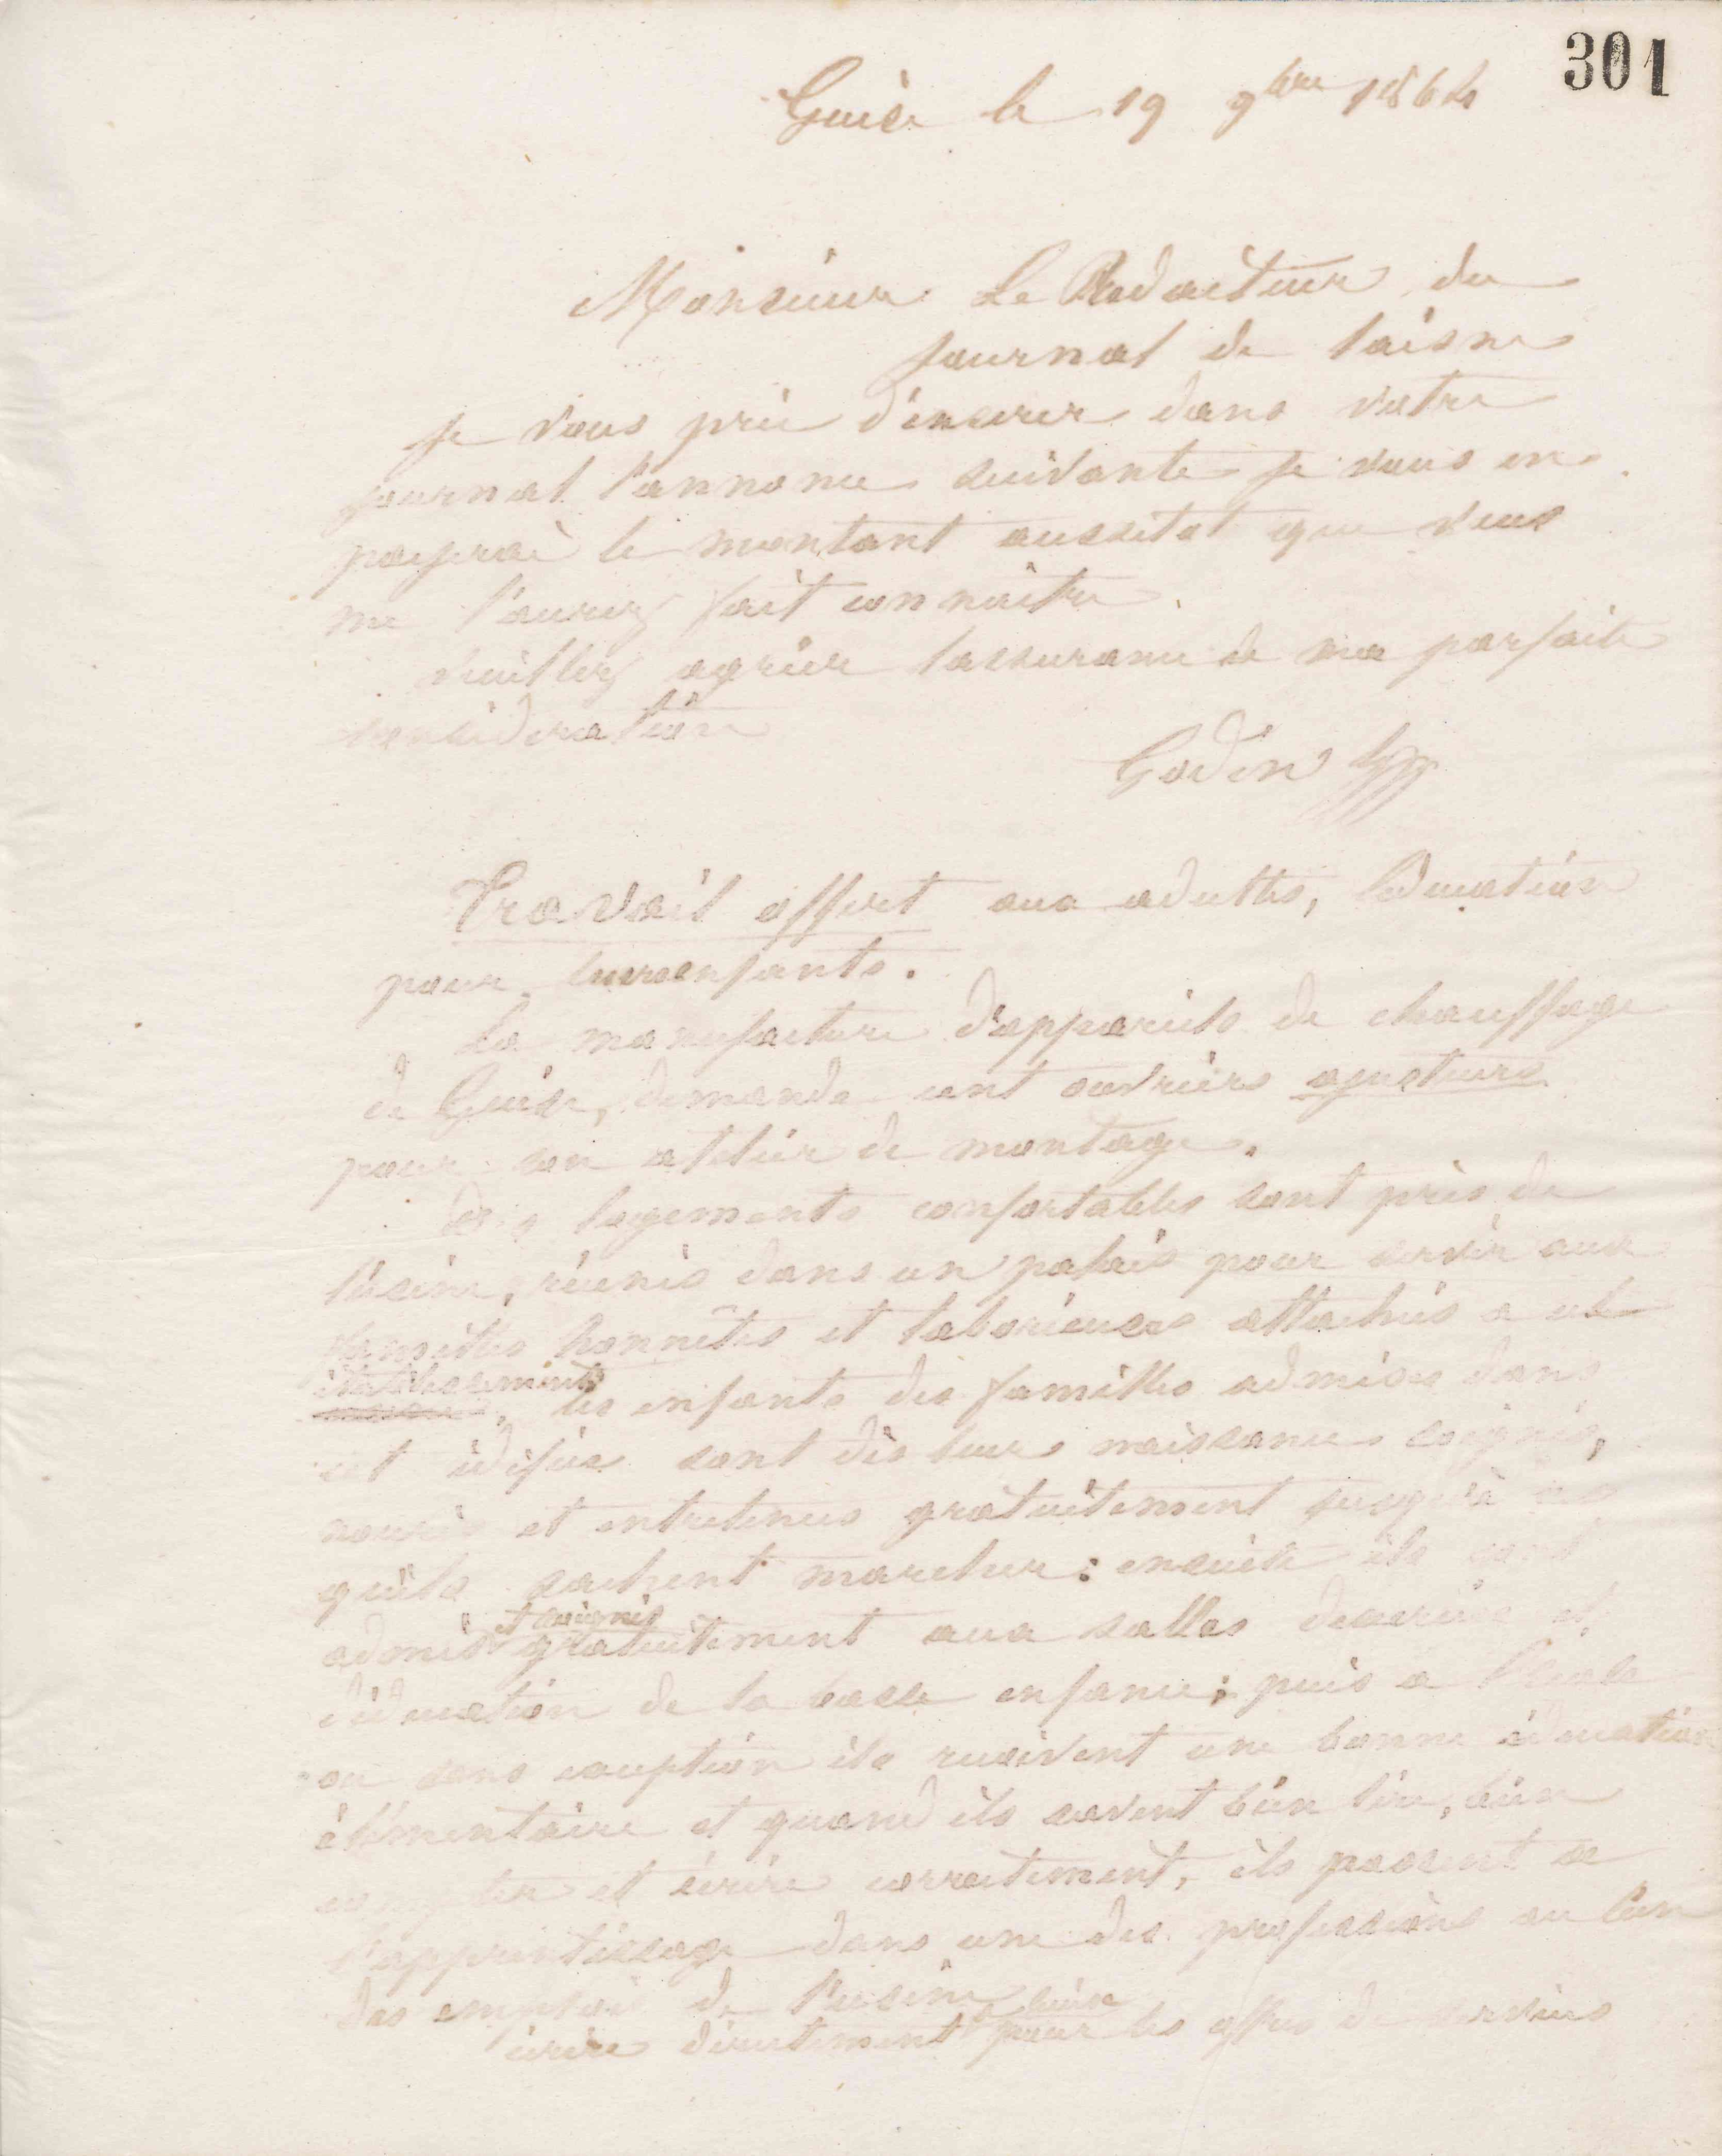 301
Guise le 19 9bre 1864
Monsieur Le Rédacteur du
Journal de laisne
Je vous prie d'insérer dans votre
journal l'annonce suivante je vous en
payerai le montant aussitot que vous
me l'aurez fait connaitre.
Veuillez agréer lassurance de ma parfaite
considération
Godin
Travail offert aux adultes, Education
pour leurs enfants.
La manufacture d'appareils de chauffage
de Guise, demande cent ouvriers ajusteurs
pour son atelier de montage.
des logements confortables sont près de
l'usine, réunis dans un palais pour servir aux
familles honnêtes et laborieuses attachés a cet
établissement, les enfants des familles admises dans
cet édifice sont dès leurs naissances soignés,
nouris et entretenus gratuitement jusqu'à ce
qu'ils sachent marcher : ensuite ils sont
admis et soignés gratuitement aux salles dexercice et
d'éducation de la basse enfance ; puis a l'école
ou sans exception ils recoivent une bonne éducation
élémentaire et quand ils savent bien lire, bien
compter et écrire correctement, ils passent a
l'apprentissage dans une des professions ou l'un
des emplois de l'usine
écrire directement a Guise pour les offres de services